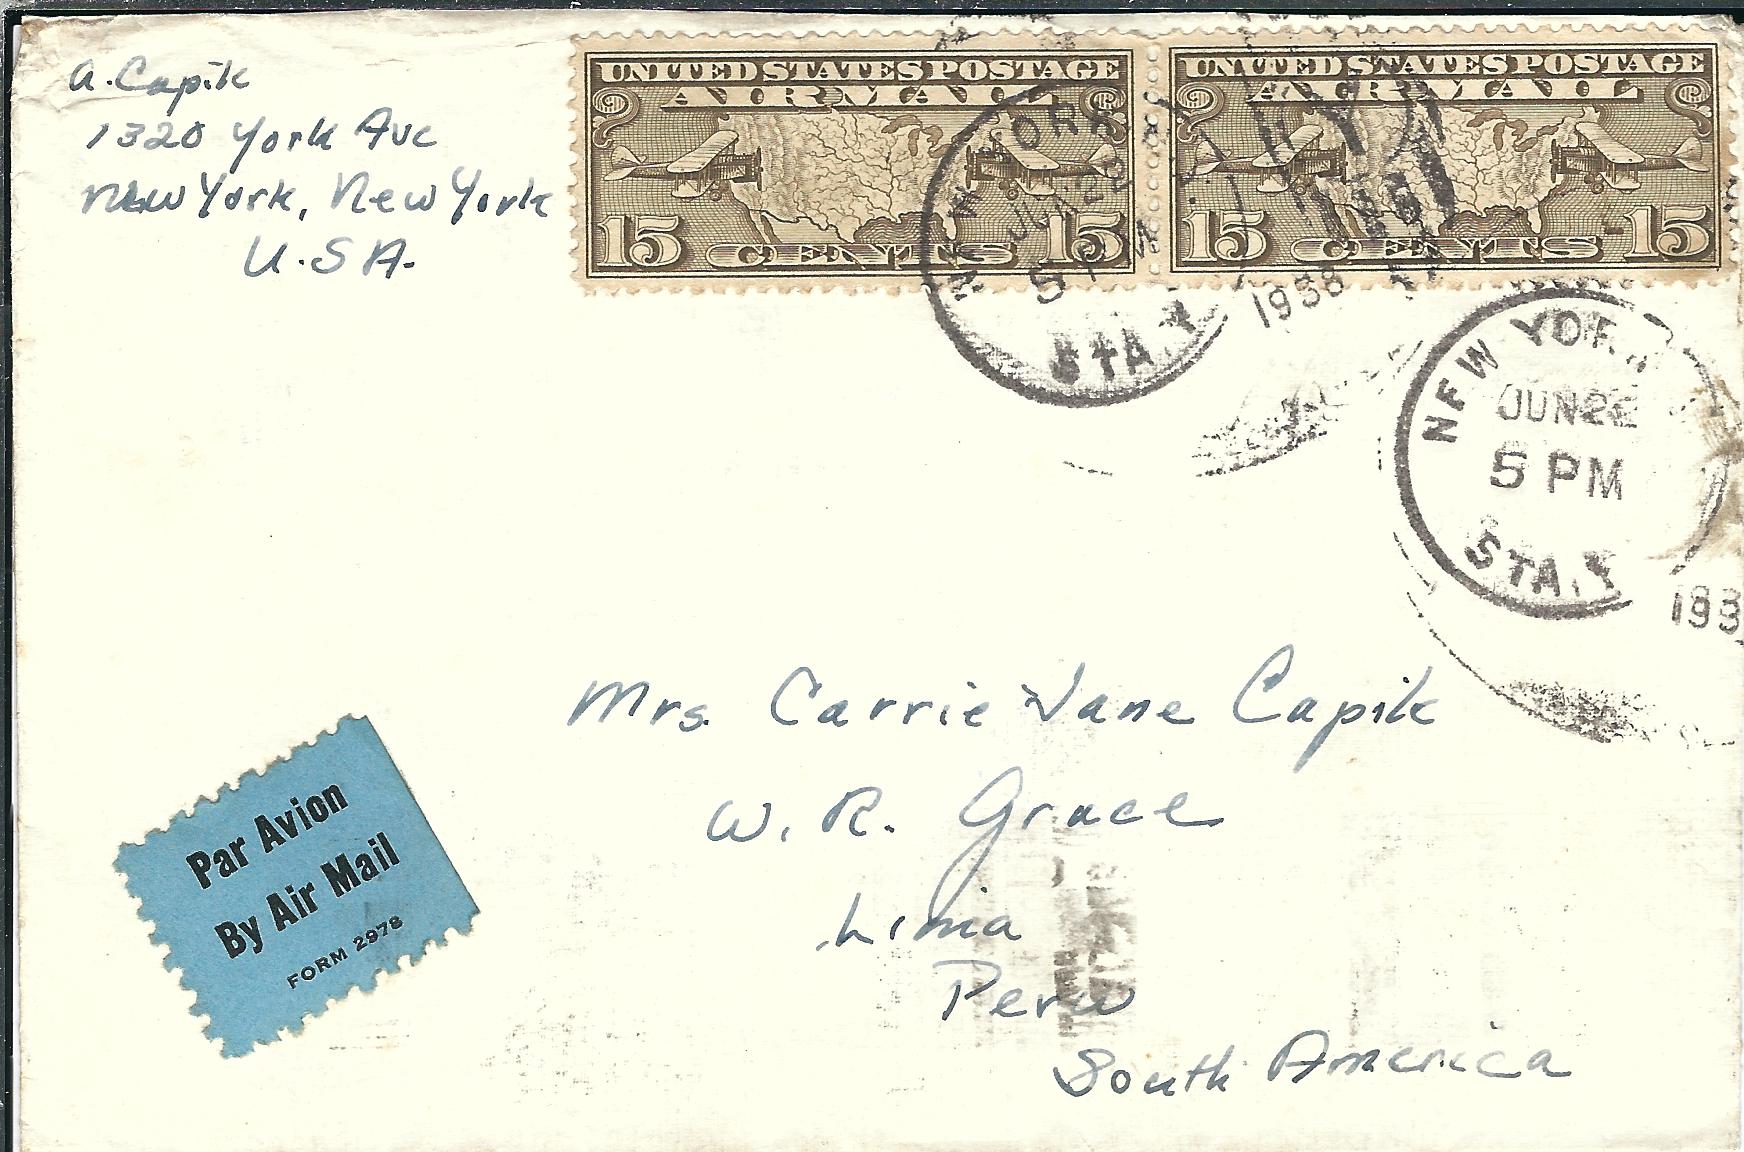 A. Capik
1320 York Ave
New York, New York
U.S.A.
UNITED STATES POSTAGE
AIR MAIL
15 CENTS 15
UNITED STATES POSTAGE
AIR MAIL
15 CENTS 15
NEW YORK
JUN 22
5 PM
STA. Y
1938
NEW YORK
JUN 22
5 PM
STA. Y
193
Mrs. Carrie Jane Capik
W. R. Grace
Lima
Peru
South America
Par Avion
By Air Mail
FORM 2978